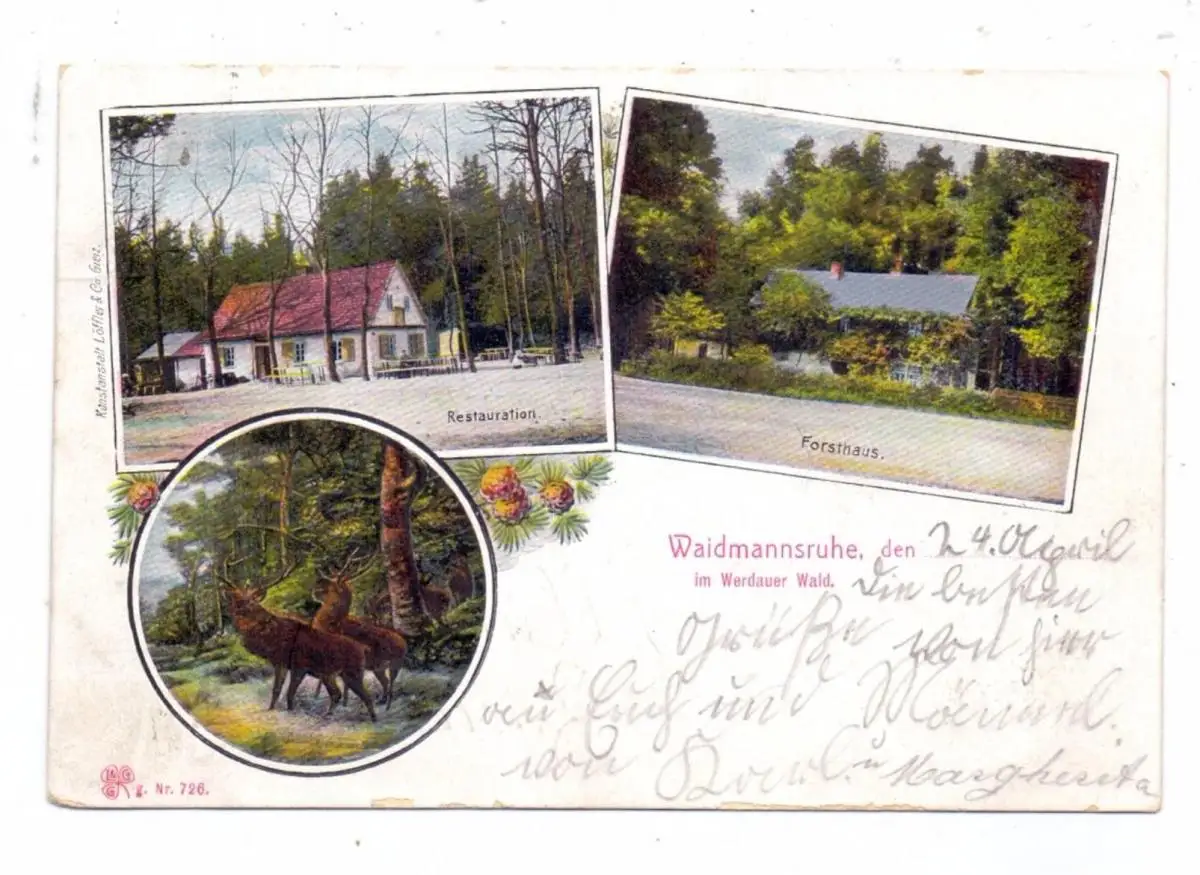 Kunstanstalt Löffler & Co Greiz.
Restauration.
Forsthaus.
Waidmannsruhe, den 24. April
im Werdauer Wald.
Die besten
Grüße von hier
an Euch und
von Karl u Margherita
L&G G
g. Nr. 726.